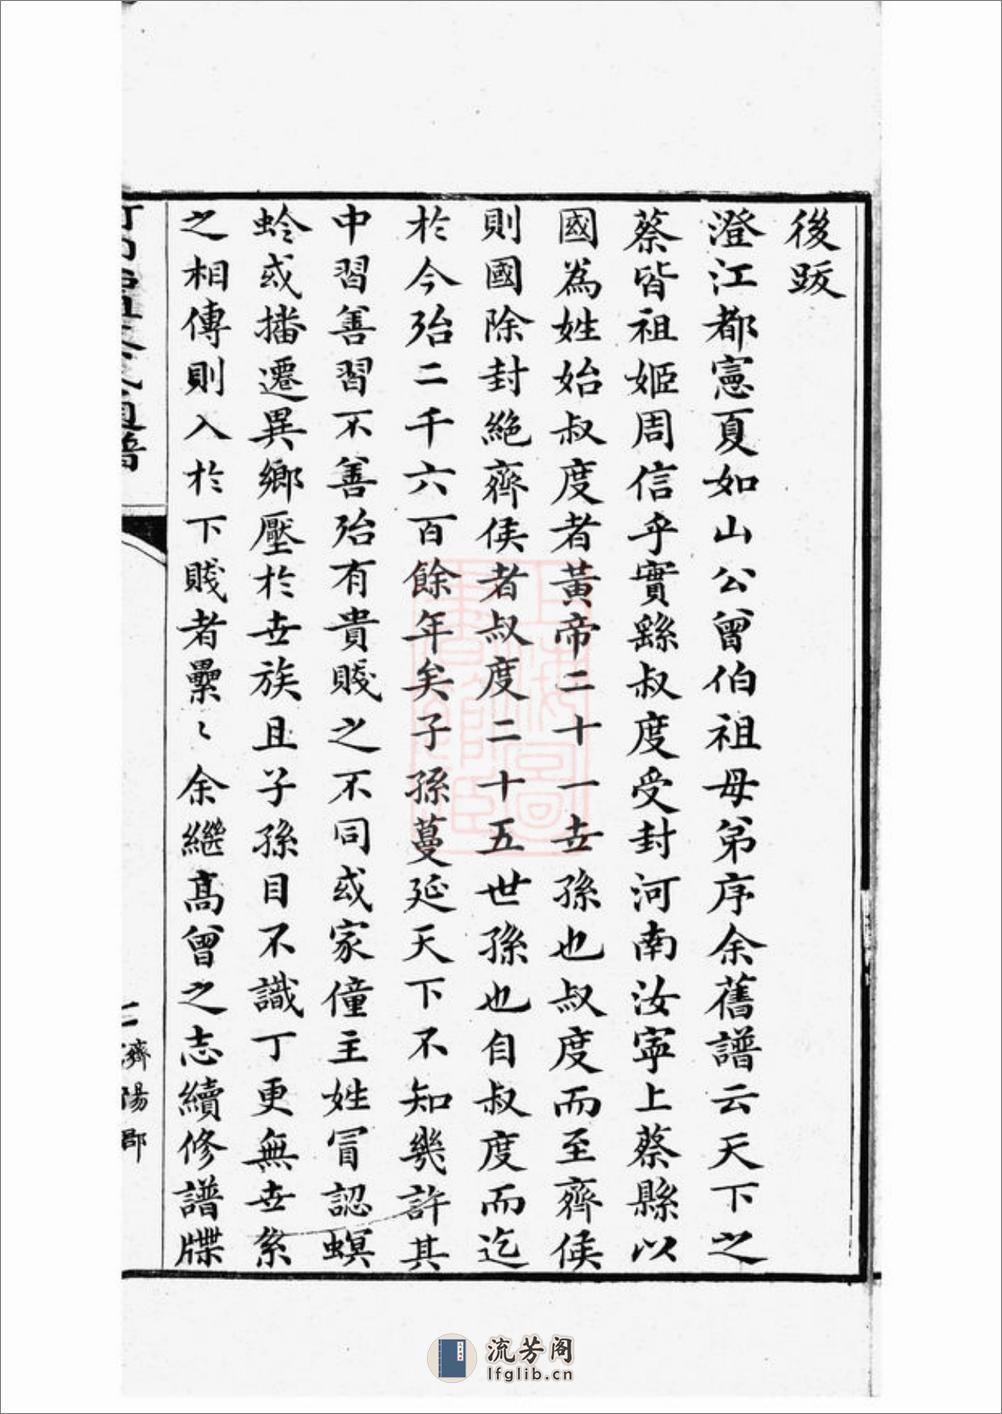 後跋
澄江都憲夏如山公曾伯祖母弟序余舊譜云天下之
蔡皆祖姬周信乎實繇叔度受封河南汝寧上蔡縣以
國為姓始叔度者黃帝二十一世孫也叔度而至齊侯
則國除封絕齊侯者叔度二十五世孫也自叔度而迄
於今殆二千六百餘年矣子孫蔓延天下不知幾許其
中習善習不善殆有貴賤之不同或家僮主姓冒認螟
蛉或播遷異鄉壓於世族且子孫目不識丁更無世系
之相傳則入於下賤者纍〻余繼高曾之志續修譜牒
濟陽郡
流芳阁
lfglib.cn